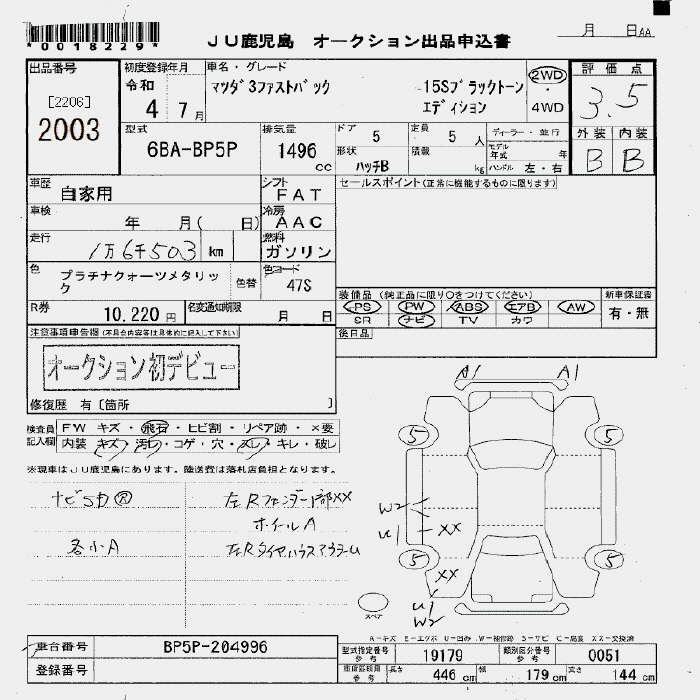 *0018229*
JU鹿児島 オークション出品申込書
月 日AA
出品番号
[2206]
2003
初度登録年月
令和
4 7月
車名・グレード
マツダ3ファストバック
15Sブラックトーン
エディション
2WD
・
4WD
評価点
3.5
外装 内装
B B
型式
6BA-BP5P
排気量
1496
cc
ドア 5
定員 5 人
形状 ハッチB
積載 kg
ディーラー・並行
モデル年式 年
ハンドル 左・右
車歴
自家用
シフト
FAT
車検
年 月( 日)
冷房
AAC
走行
1万6千503 km
燃料
ガソリン
色
プラチナクォーツメタリック
色替
色コード
47S
R券
10,220 円
名変通知期限
月 日
セールスポイント(正常に機能するものに限ります)
装備品 (純正品に限り○をつけてください)
PS PW ABS エアB AW
SR ナビ TV カワ
新車保証書
有・無
後日品
注意事項申告欄(不具合内容等は具体的に記入して下さい)
オークション初デビュー
修復歴 有〔箇所 〕
検査員
記入欄
FW キズ・飛石・ヒビ割・リペア跡・×要
内装 キズ・汚れ・コゲ・穴・スレ・キレ・破レ
※現車はJU鹿児島にあります。陸送費は落札店負担となります。
各小A
左Rフェンダー下部XX
ホイルA
A1 A1
5 5
W2
U1 XX
5 5
XX
U1
W2
スペア
A-キズ E-エクボ U-凹み W-補修跡 S-サビ C-腐食 XX-交換済
車台番号
BP5P-204996
登録番号
型式指定番号
参考
19179
類別区分番号
参考
0051
車庫証明用
参考
長さ 446 cm
幅 179 cm
高さ 144 cm